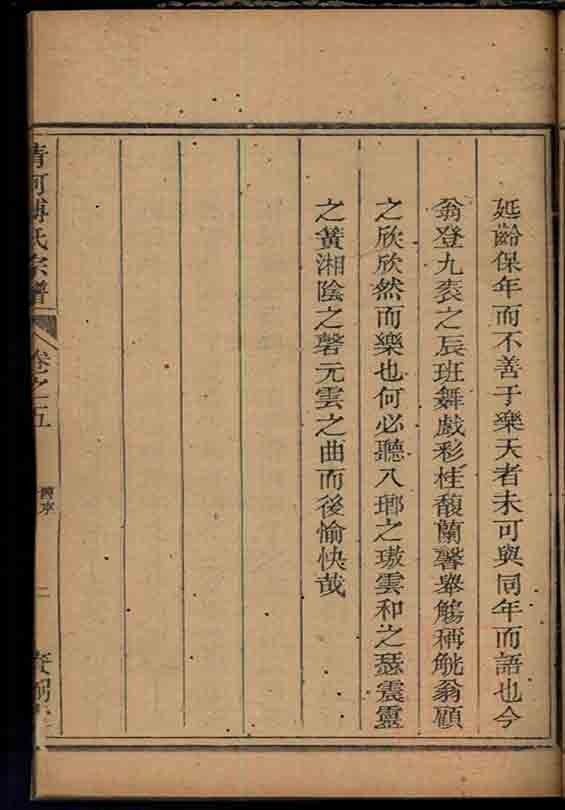 延齡保年而不善于樂天者未可與同年而語也今
翁登九袠之辰班舞戲彩桂馥蘭馨舉觴稱觥翁顧
之欣欣然而樂也何必聽八瑯之璈雲和之瑟震靈
之簧湘陰之磬元雲之曲而後愉快哉
清河傅氏宗譜
卷之五
二